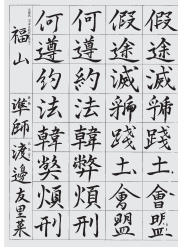 假途滅虢踐土會盟
假途滅虢踐土會盟
何遵約法韓弊煩刑
何遵約法韓弊煩刑
福山 準師 渡邊友里菜